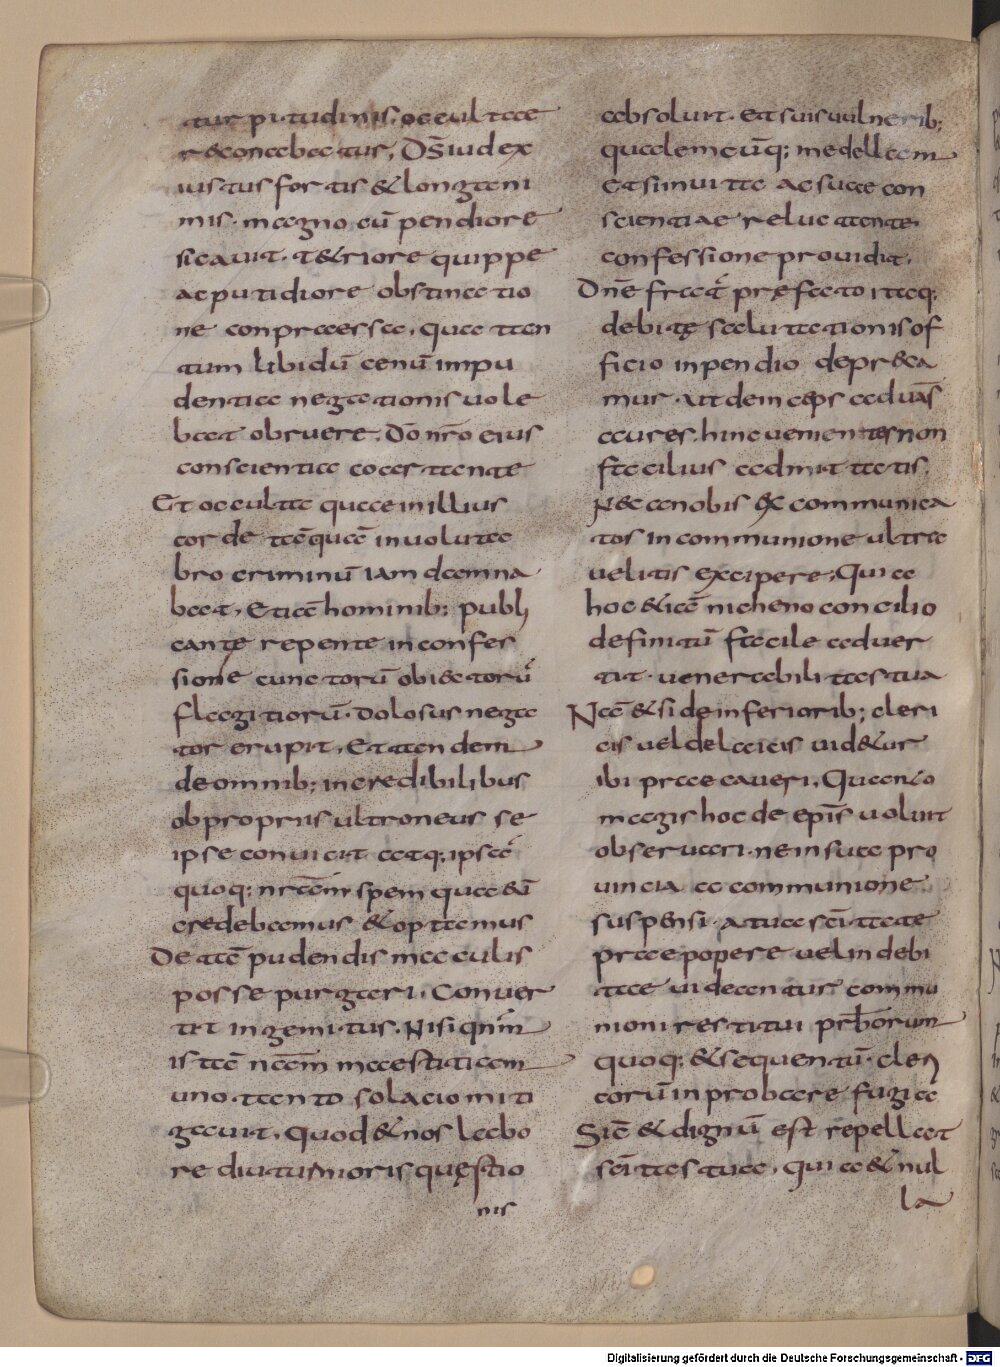 turpitudinis. occulta ce
r&concebatur, Dn̄s iudex
iustus fortis & longani
mis. magno cū pendio re
sicavit. t&riore quippe
ac putidiore obstinatio
ne conpraessa. qua tan
tum libidū cenū impu
dentia negationis uole
bat obruere. Dō nr̄o eius
conscientia coartante
Et occulta quae in illius
corde tāquā in uoluta
bro criminū iam damna
bat. Etiā hominib; publi
cante repente in confes
sione cunctorū obiectorū
flagitiorū. dolosus nega
tor erupit. Et tandem
de omnib; incredibilibus
obpropriis ultroneus se
ipse conuicit. atq; ipsā
quoq; nr̄am spem qua eū
credebamus & optamus
De tā pudendis maculis
posse purgari. Conuer
tit in gemitus. Nisi qm̄
istā nr̄am maestitiam
uno tanto solacio miti
gauit. Quod & nos labo
re diuturnioris quęstio
nis
absoluit. et suis uulnerib;
qualemcūq; medellam
etsi inuita ac sua con
scientiae reluctante
confessione prouidit.
Dnē frat̄ prefecto itaq;
debitę salutationis of
ficio inpendio depraeca
mur. Ut deinceps ad uās
aures. hinc uenientes non
facilius admittatis.
Nec a nobis excommunica
tos in communione ultra
uelitis excipere. Quia
hoc etiā nicheno concilio
definitū facile aduer
tit uenerabilitas tua
Nā & si de inferiorib; cleri
cis uel de laicis uid&ur
ibi praecaueri. Quanto
magis hoc de epīs uoluit
obseruari. ne in sua pro
uincia a communione
suspensi. a tua sc̄itate
praepopere uel indebi
tae uideantur commu
nioni restitui prb̄orum
quoq; & sequentū cleri
corū inprobare fugia
Sic̄ & dignū est repellat
sc̄itas tua. quia & nul
la
Digitalisierung gefördert durch die Deutsche Forschungsgemeinschaft - DFG